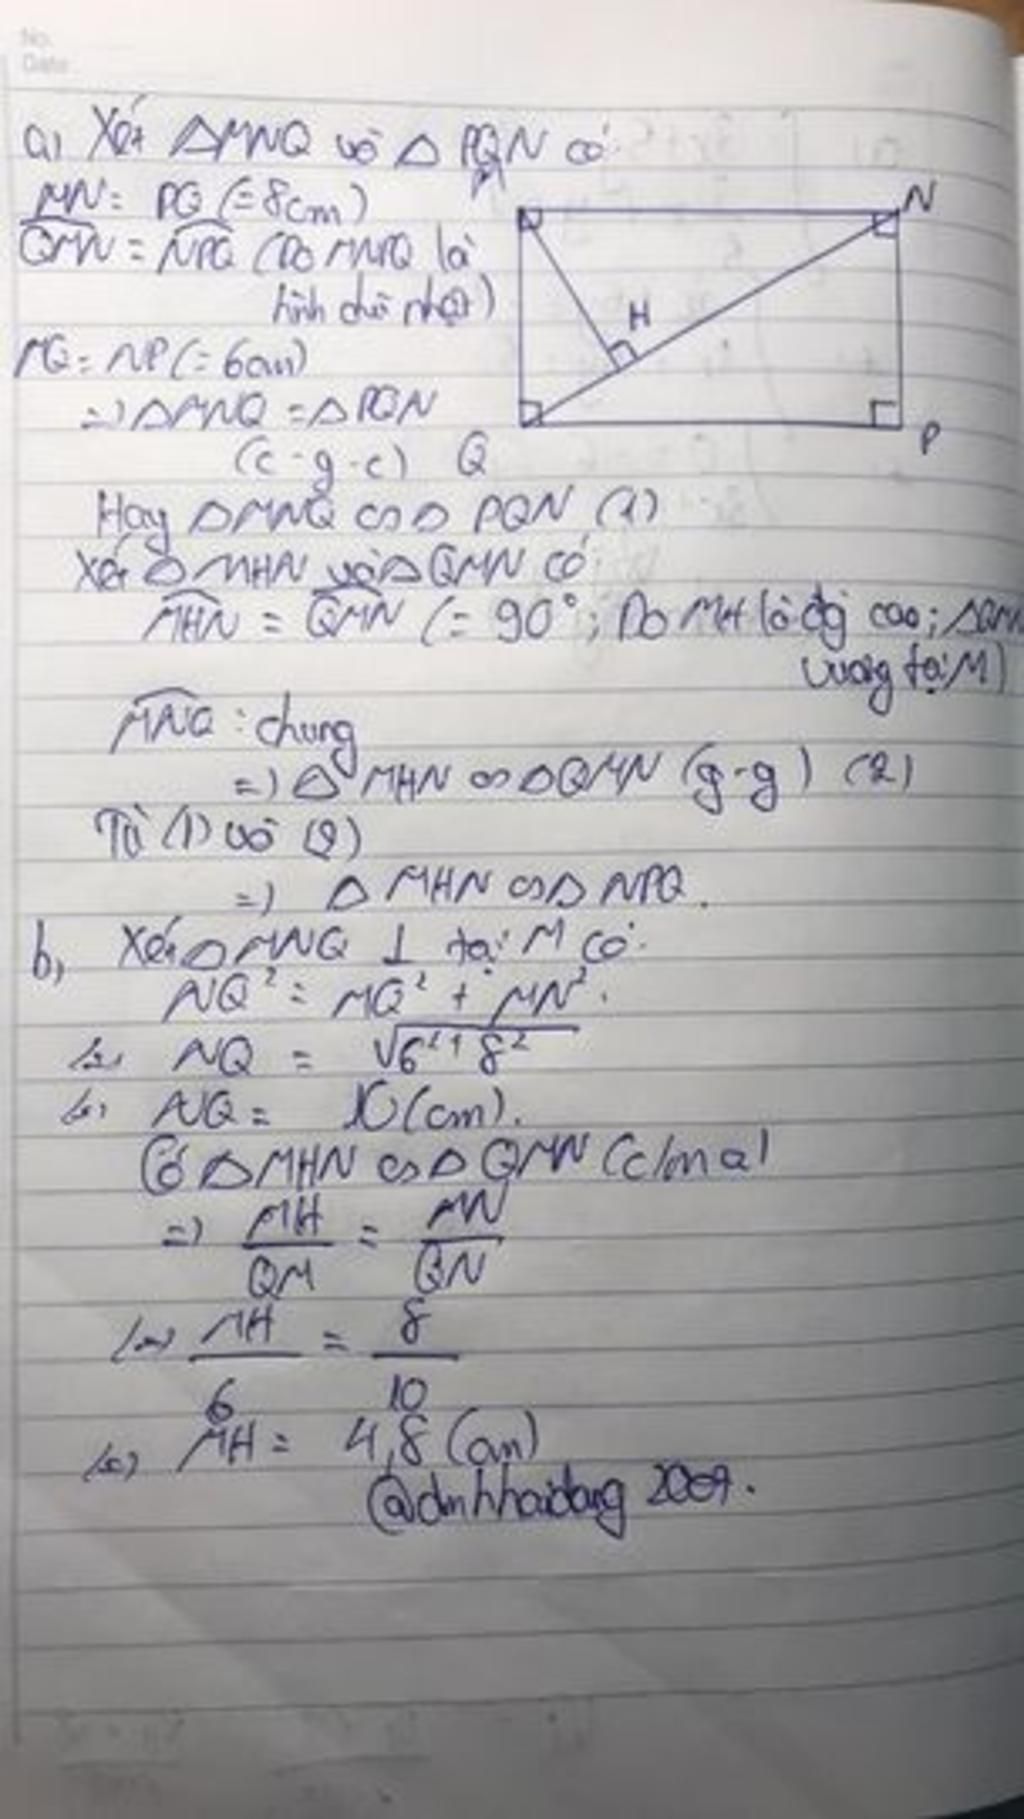 No.
Date
a, Xét △MNQ và △ PQN có:
MN = PQ (= 8cm)
QMN = NPQ (Do MNPQ là
hình chữ nhật)
MQ = NP (= 6cm)
=> △MNQ = △PQN
(c-g-c)
M
N
H
Q
P
Hay △MNQ ∽ △ PQN (1)
Xét △MHN và △QMN có:
MHN = QMN (= 90°; Do MH là đg cao; △QMN
vuông tại M)
MNQ : chung
=> △ MHN ∽ △QMN (g-g) (2)
Từ (1) và (2)
=> △ MHN ∽ △ NPQ.
b, Xét △MNQ ⊥ tại M có:
NQ² = MQ² + MN².
<=> NQ = √6²+8²
<=> NQ = 10(cm).
Có △MHN ∽ △ QMN (c/m a)
=> MH/QM = MN/QN
<=> MH/6 = 8/10
<=> MH = 4,8 (cm)